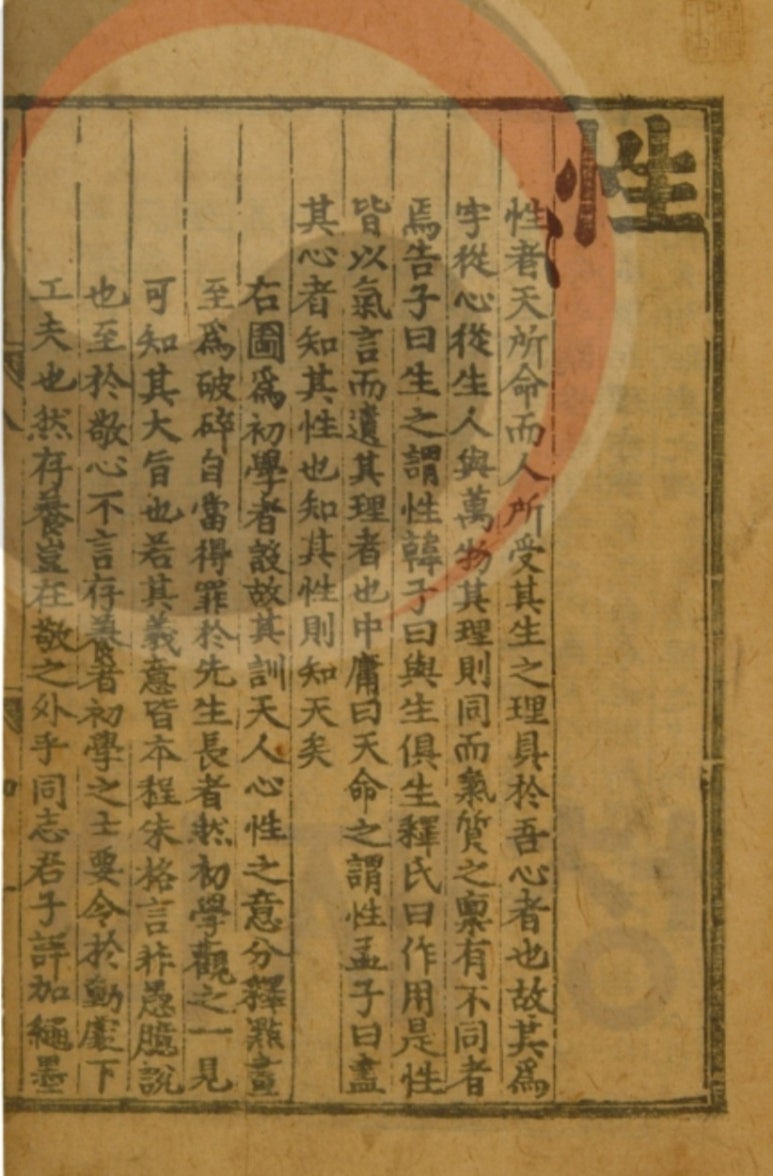 性
性者天所命而人所受其生之理具於吾心者也故其爲
字從心從生人與萬物其理則同而氣質之稟有不同者
焉告子曰生之謂性韓子曰與生俱生釋氏曰作用是性
皆以氣言而遺其理者也中庸曰天命之謂性孟子曰盡
其心者知其性也知其性則知天矣
右圖爲初學者設故其訓天人心性之意分釋點畫
至爲破碎自當得罪於先生長者然初學觀之一見
可知其大旨也若其義意皆本程朱格言非愚臆說
也至於敬心不言存養者初學之士要令於動處下
工夫也然存養豈在敬之外乎同志君子詳加繩墨